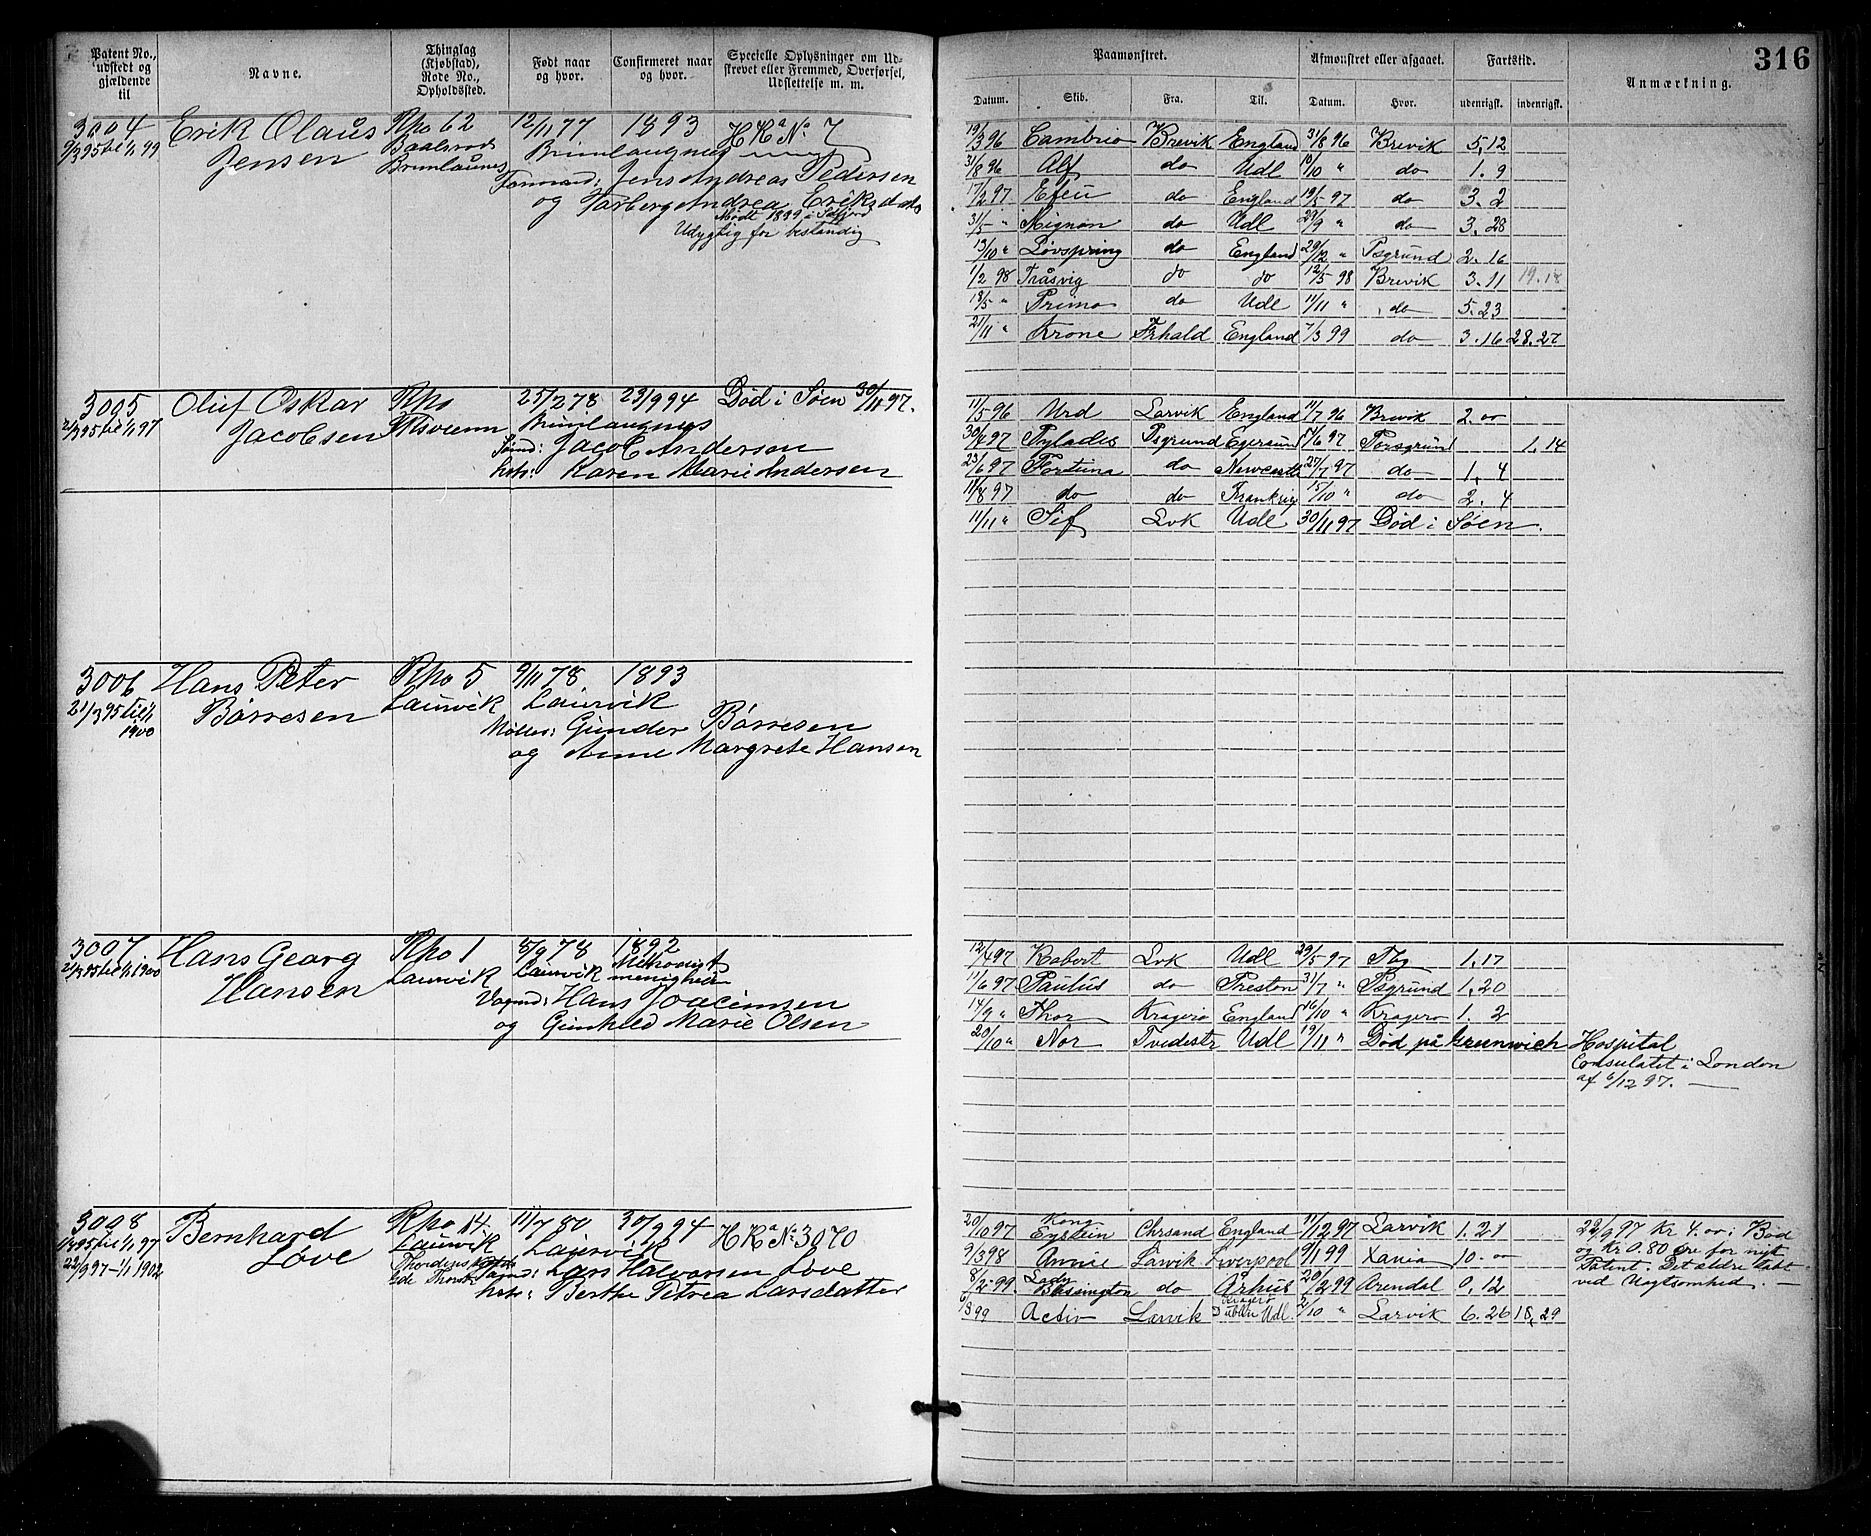 316
Patent No., udstedt og gjældende til
Navne.
Thinglag (Kjøbstad), Rode No., Opholdssted.
Født naar og hvor.
Confirmeret naar og hvor.
Specielle Oplysninger om Udskrevet eller Fremmed, Overførsel, Udslettelse m. m.
Paamønstret.
Afmønstret eller afgaaet.
Fartstid.
Anmærkning.
Datum. Skib. Fra. Til. Datum. Hvor. udenrigsk. indenrigsk.
3004 Erik Olaus Rho 62 12/11 77 1893 HKa No 7
9/3 95 til 1/1 99 Jensen Brunlaugnes Brunlaugnes
Jens Andreas Pedersen
og Torberg Andrea Eriksdatter
Mødt 1899
Udygtig for bestandig
19/3 96 Cambria Brevik England 31/8 96 Brevik 5,12
31/8 96 Alf do Udl 10/10 " do 1.9
17/2 97 Efeu do England 19/5 97 do 3.2
31/5 " Mignon do Udl 29/9 " do 3.28
13/10 " Løvspring do England 29/12 " Psgrund 2.16
1/2 98 Tråsvig do do 12/5 98 Brevik 3.11 19.18
18/5 " Primo do Udl 11/11 " do 5.23
21/11 " Krone Frhald England 7/3 99 do 3.16 28.27
3005 Oluf Oskar Rho 25/2 78 23/9 94 Død i Søen 30/11 97.
2/3 95 til 1/1 97 Jacobsen Brunlaugnes
Jacob Andersen
hst: Karen Marie Andersen
11/5 96 Urd Larvik England 11/7 96 Brevik 2.00
Pylades Psgrund Egersund 97 Porsgrund 1.14
23/6 97 Fortuna do Newcastle 25/7 97 do 1.4
11/8 97 do do Frankrig 15/10 " do 2.4
11/11 " Sif Lvk Udl 30/11 97 Død i Søen.
3006 Hans Peter Rho 5 9/11 78 1893
21/3 95 til 1/1 1900 Børresen Laurvik Laurvik
Møller: Gunder Børresen
og Anne Margrete Hansen
3007 Hans Georg Rho 1 15/9 78 1892
2/3 95 til 1/1 1900 Hansen Laurvik Laurvik Methodist menighed
Vognd: Hans Joacimsen
og Gunhild Marie Olsen
12/4 97 Robert Lvk Udl 29/5 97 Tbg 1.17
11/6 97 Paulus do Preston 31/7 " Psgrund 1,20
14/9 " Thor Kragerø England 16/10 " Kragerø 1.2
20/10 " Nor Tvedestr Udl 19/11 " Død på Greenwich Hospital
Consulatet i London
af 6/12 97.
3008 Bernhard Rho 14. 11/7 80 30/9 94 HKa No 3070
1/4 95 til 1/1 97 Løve Laurvik Laurvik
22/9 97 - 1/1 1902 Lars Halvorsen Løve
hst: Berthe Petrea Larsdatter
20/10 97 Kong Eystein Chrsand England 11/12 97 Larvik 1.21
9/3 98 Annie Larvik Liverpool 9/1 99 Xania 10.00
8/2 99. Lady Bassington do Århus 20/2 99 Arendal 0,12
6/3 99 Activ Larvik Dublin Kragerø Udl. 2/10 " Larvik 6.26 18,29
22/9 97 Kr 4.00 i Bød
og Kr 0.80 Øre for nyt
Patent. Det ældre tabt
ved Uagtsomhed.